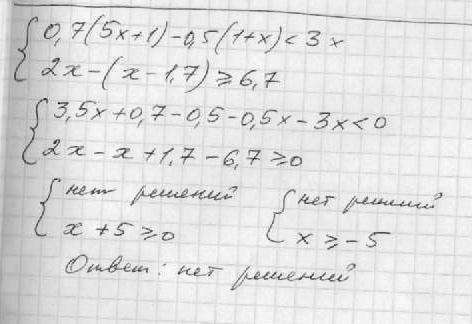 0,7(5x+1)-0,5(1+x)<3x
2x-(x-1,7)≥6,7
3,5x+0,7-0,5-0,5x-3x<0
2x-x+1,7-6,7≥0
нет решений нет решений
x+5≥0 x≥-5
Ответ: нет решений